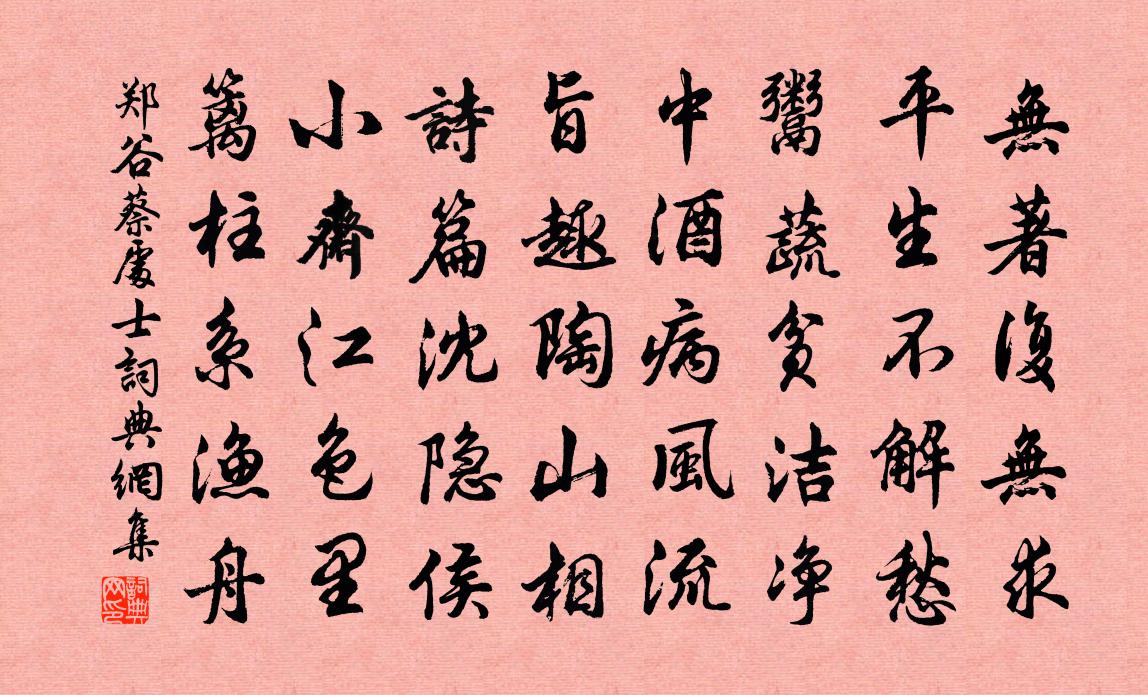 無著復無求
平生不解愁
鬻蔬貧洁净
中酒病風流
旨趣陶山相
詩篇沈隐侯
小齋江色里
籬柱系漁舟
郑谷蔡處士詞典網集
詞典网印